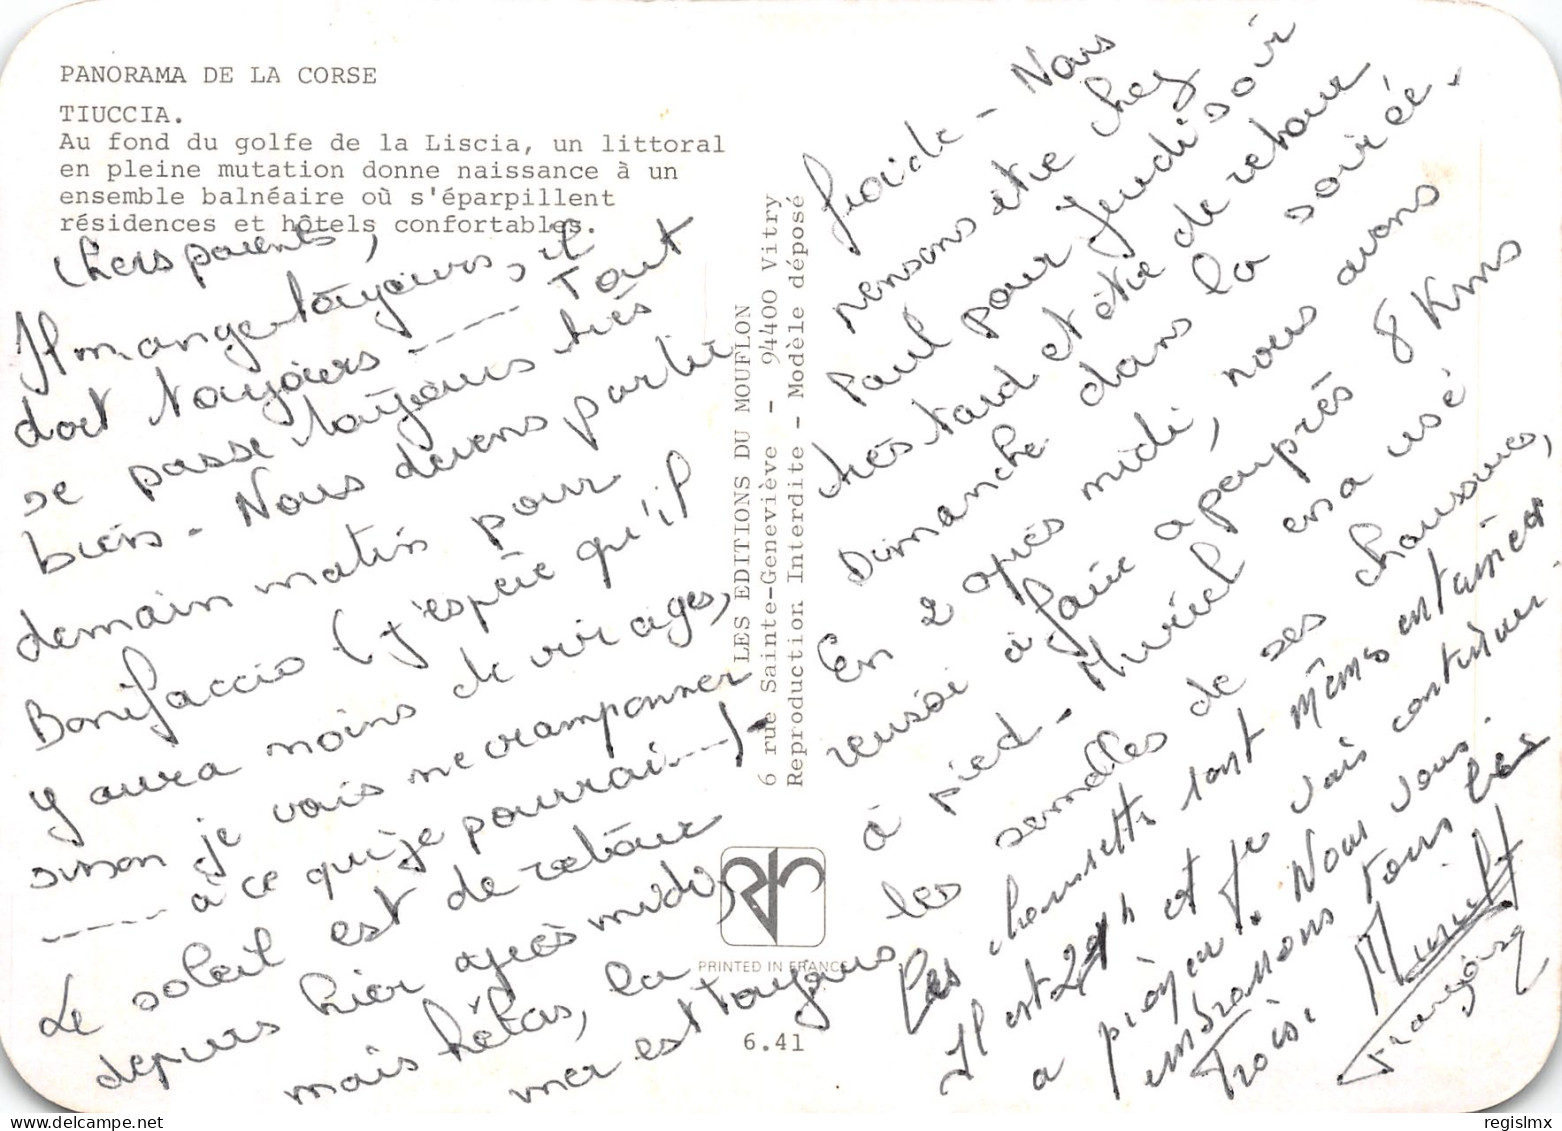 PANORAMA DE LA CORSE
TIUCCIA.
Au fond du golfe de la Liscia, un littoral
en pleine mutation donne naissance à un
ensemble balnéaire où s'éparpillent
résidences et hôtels confortables.
Chers parents,
Il mange toujours, il
dort toujours ----- Tout
se passe toujours très
bien - Nous devons partir
demain matin pour
Bonifaccio (j'espère qu'il
y aura moins de virages,
sinon je vais me cramponner
----- à ce que je pourrai---)-
Le soleil est de retour
depuis hier après midi
mais hélas, la
mer est toujours
LES EDITIONS DU MOUFLON
6 rue Sainte-Geneviève - 94400 Vitry
Reproduction Interdite - Modèle déposé
PRINTED IN FRANCE
6.41
froide - Nous
pensons être chez
Paul pour jeudi soir
très tard et être de retour
Dimanche dans la soirée.
En 2 après midi, nous avons
réussi à faire à peu près 8 Kms
à pied - Muriel en a usé
les semelles de ses chaussures,
Les chaussettes sont mêmes entamées
Il est 21h et je vais continuer
a . Nous vous
embrassons tous les
Trois. Muriel
Françoise
regislmx